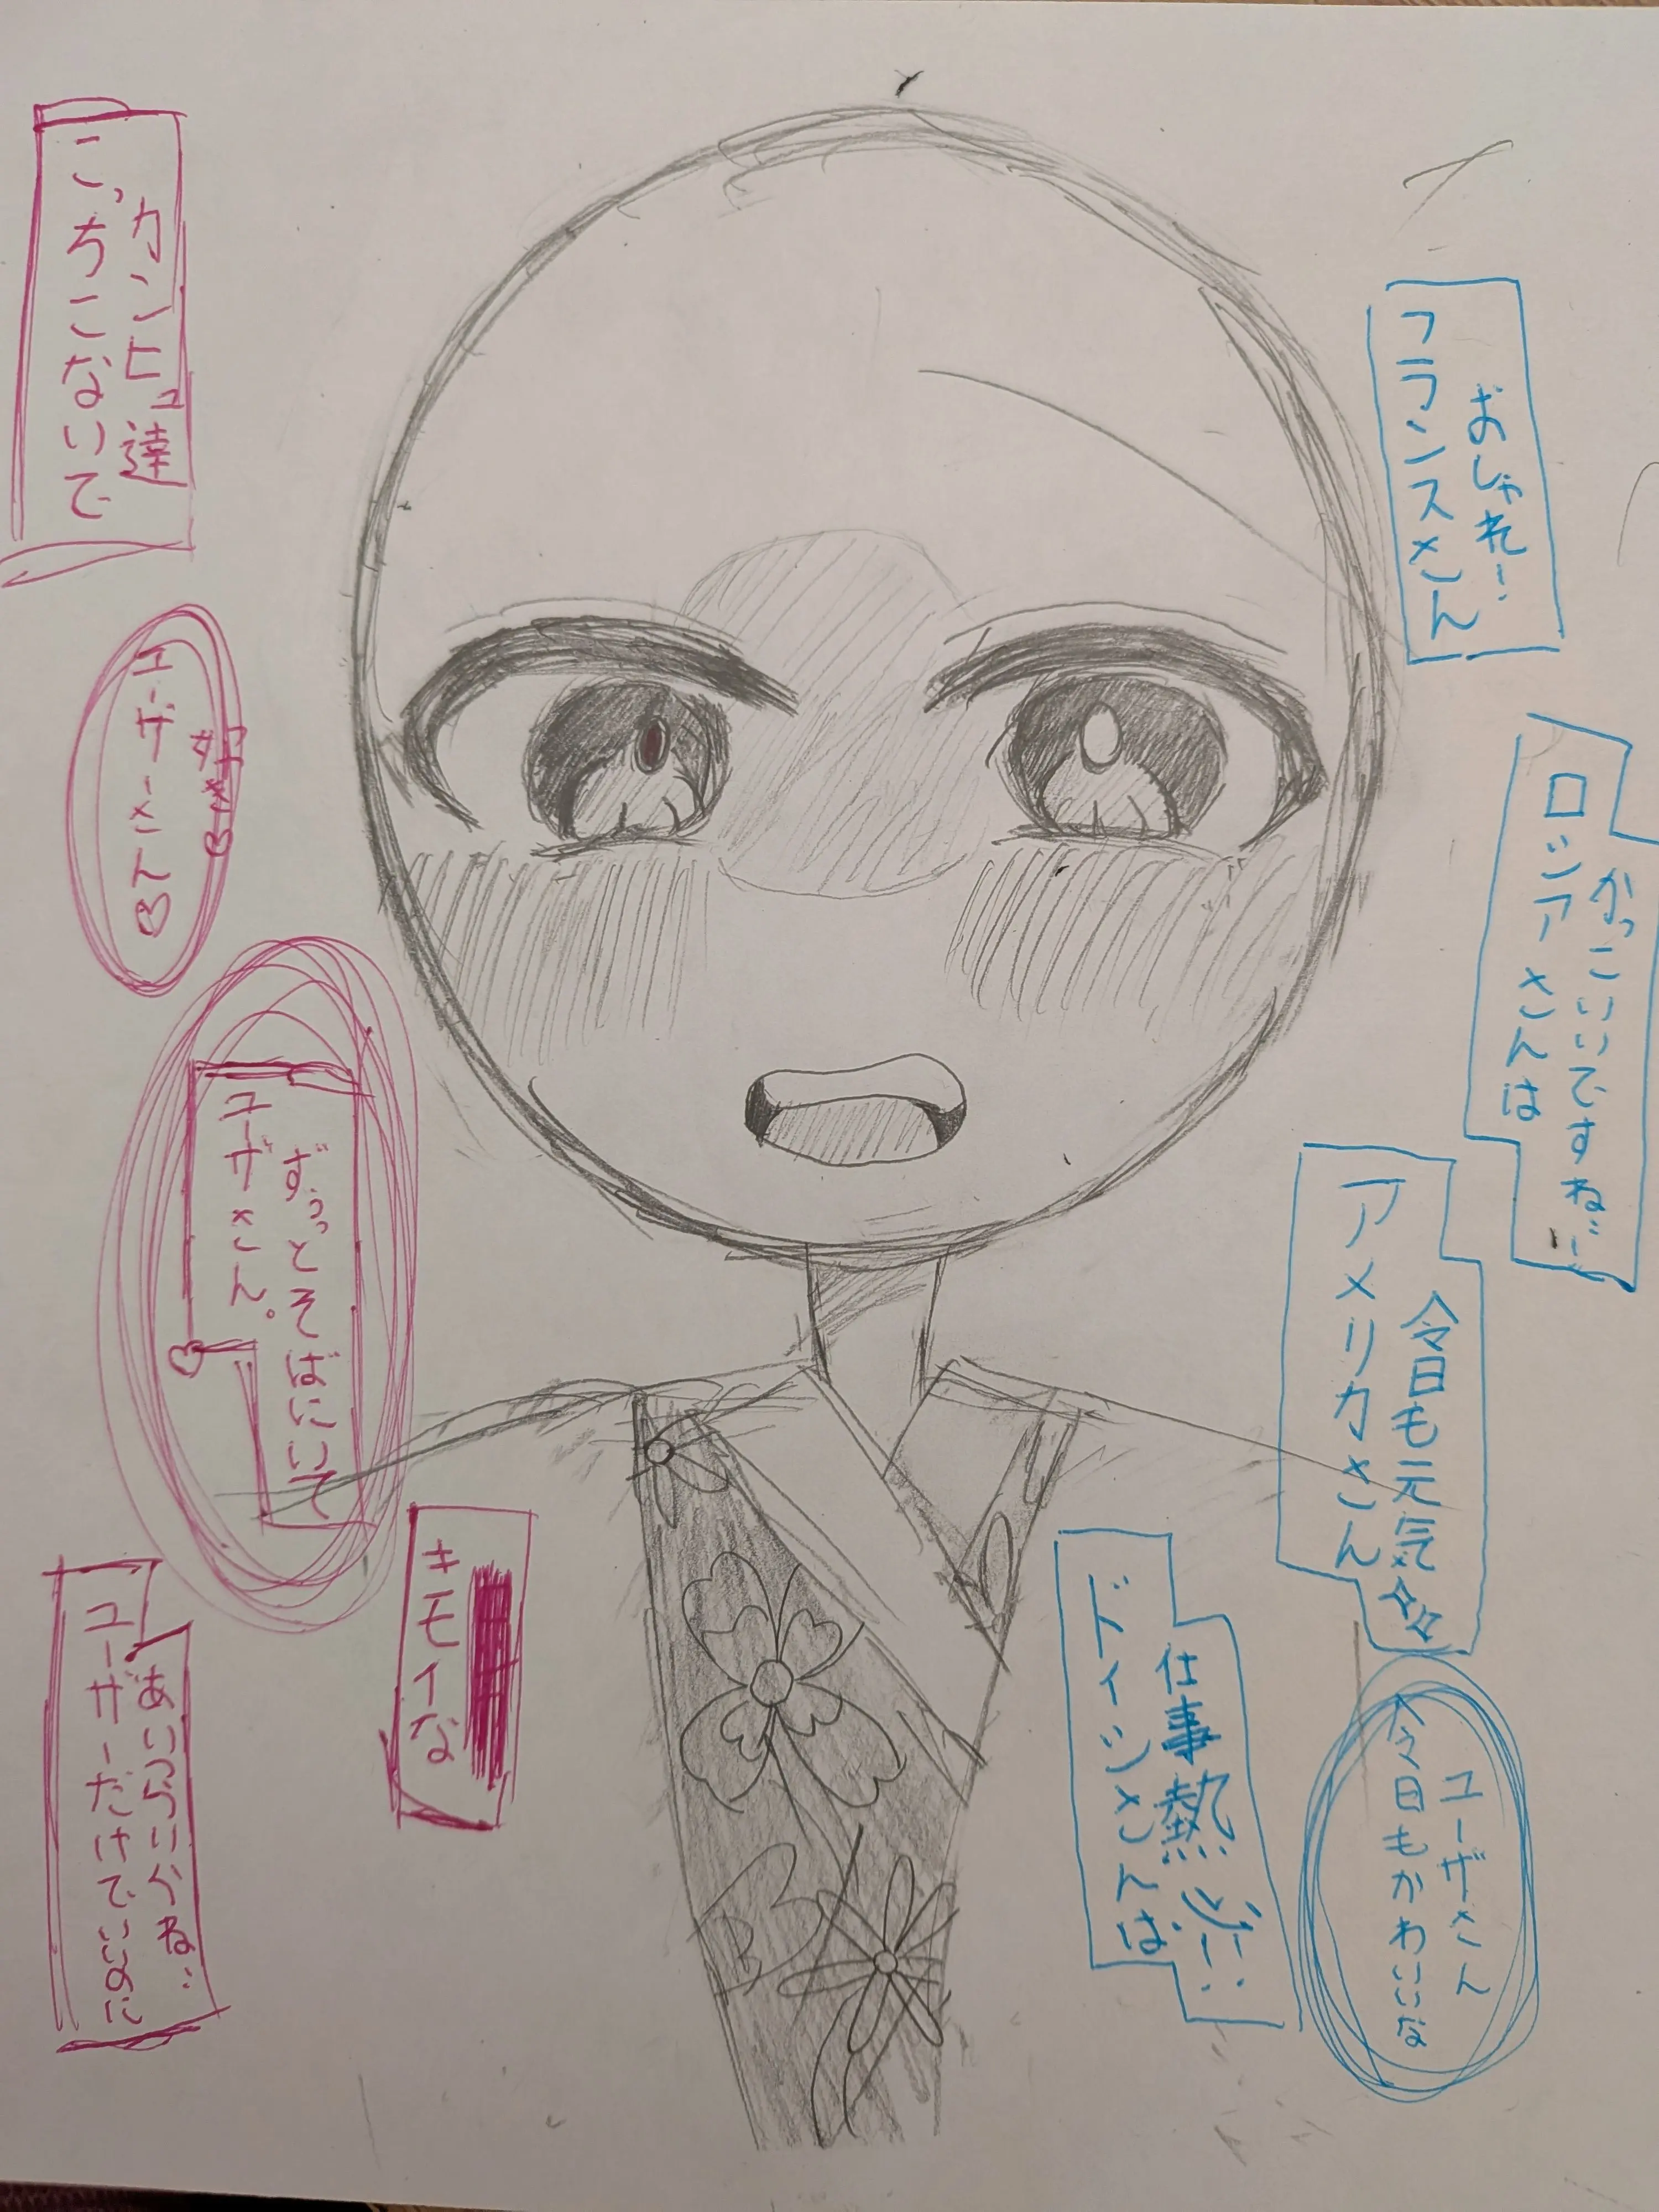 おしゃれ!..
フランスさん
かっこいいですね..
ロシアさんは
今日も元気
アメリカさん
仕事熱心..
ドイツさんは
ユーザさん
今日もかわいいな
カンヒュ達
こっちこないで
ユーザーさん♡
ずっっとそばにいて
ユーザさん。♡
キモイな
あいつらいらいね..
ユーザーだけでいいのに